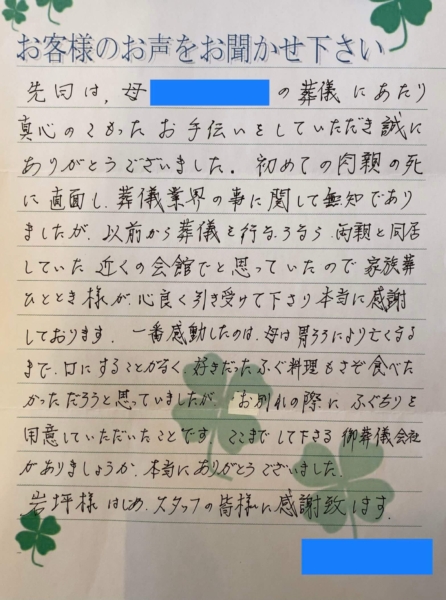 お客様のお声をお聞かせ下さい
先日は、母 の葬儀にあたり
真心のこもったお手伝いをしていただき誠に
ありがとうございました。初めての肉親の死
に直面し、葬儀業界の事に関して無知であり
ましたが、以前から葬儀を行なうなら、両親と同居
していた近くの会館でと思っていたので家族葬
ひととき様が心良く引き受けて下さり本当に感謝
しております。一番感動したのは、母は胃ろうにより亡くなる
まで、口にすることがなく、好きだったふぐ料理もさぞ食べた
かっただろうと思っていましたが、お別れの際に、ふぐちりを
用意していただいたことです。ここまでして下さる御葬儀会社
がありましょうか、本当にありがとうございました。
岩坪様はじめ、スタッフの皆様に感謝致します。